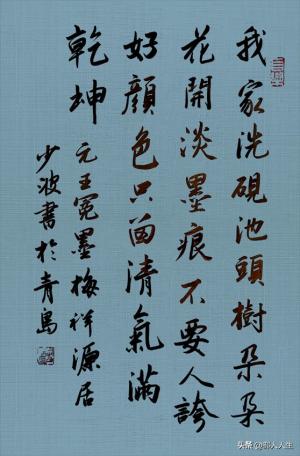 我家洗硯池頭樹朵朵
花開淡墨痕不要人誇
好顏色只留清氣滿
乾坤
元王冕墨梅祥源居
少波書於青島
头条 @耶人人生